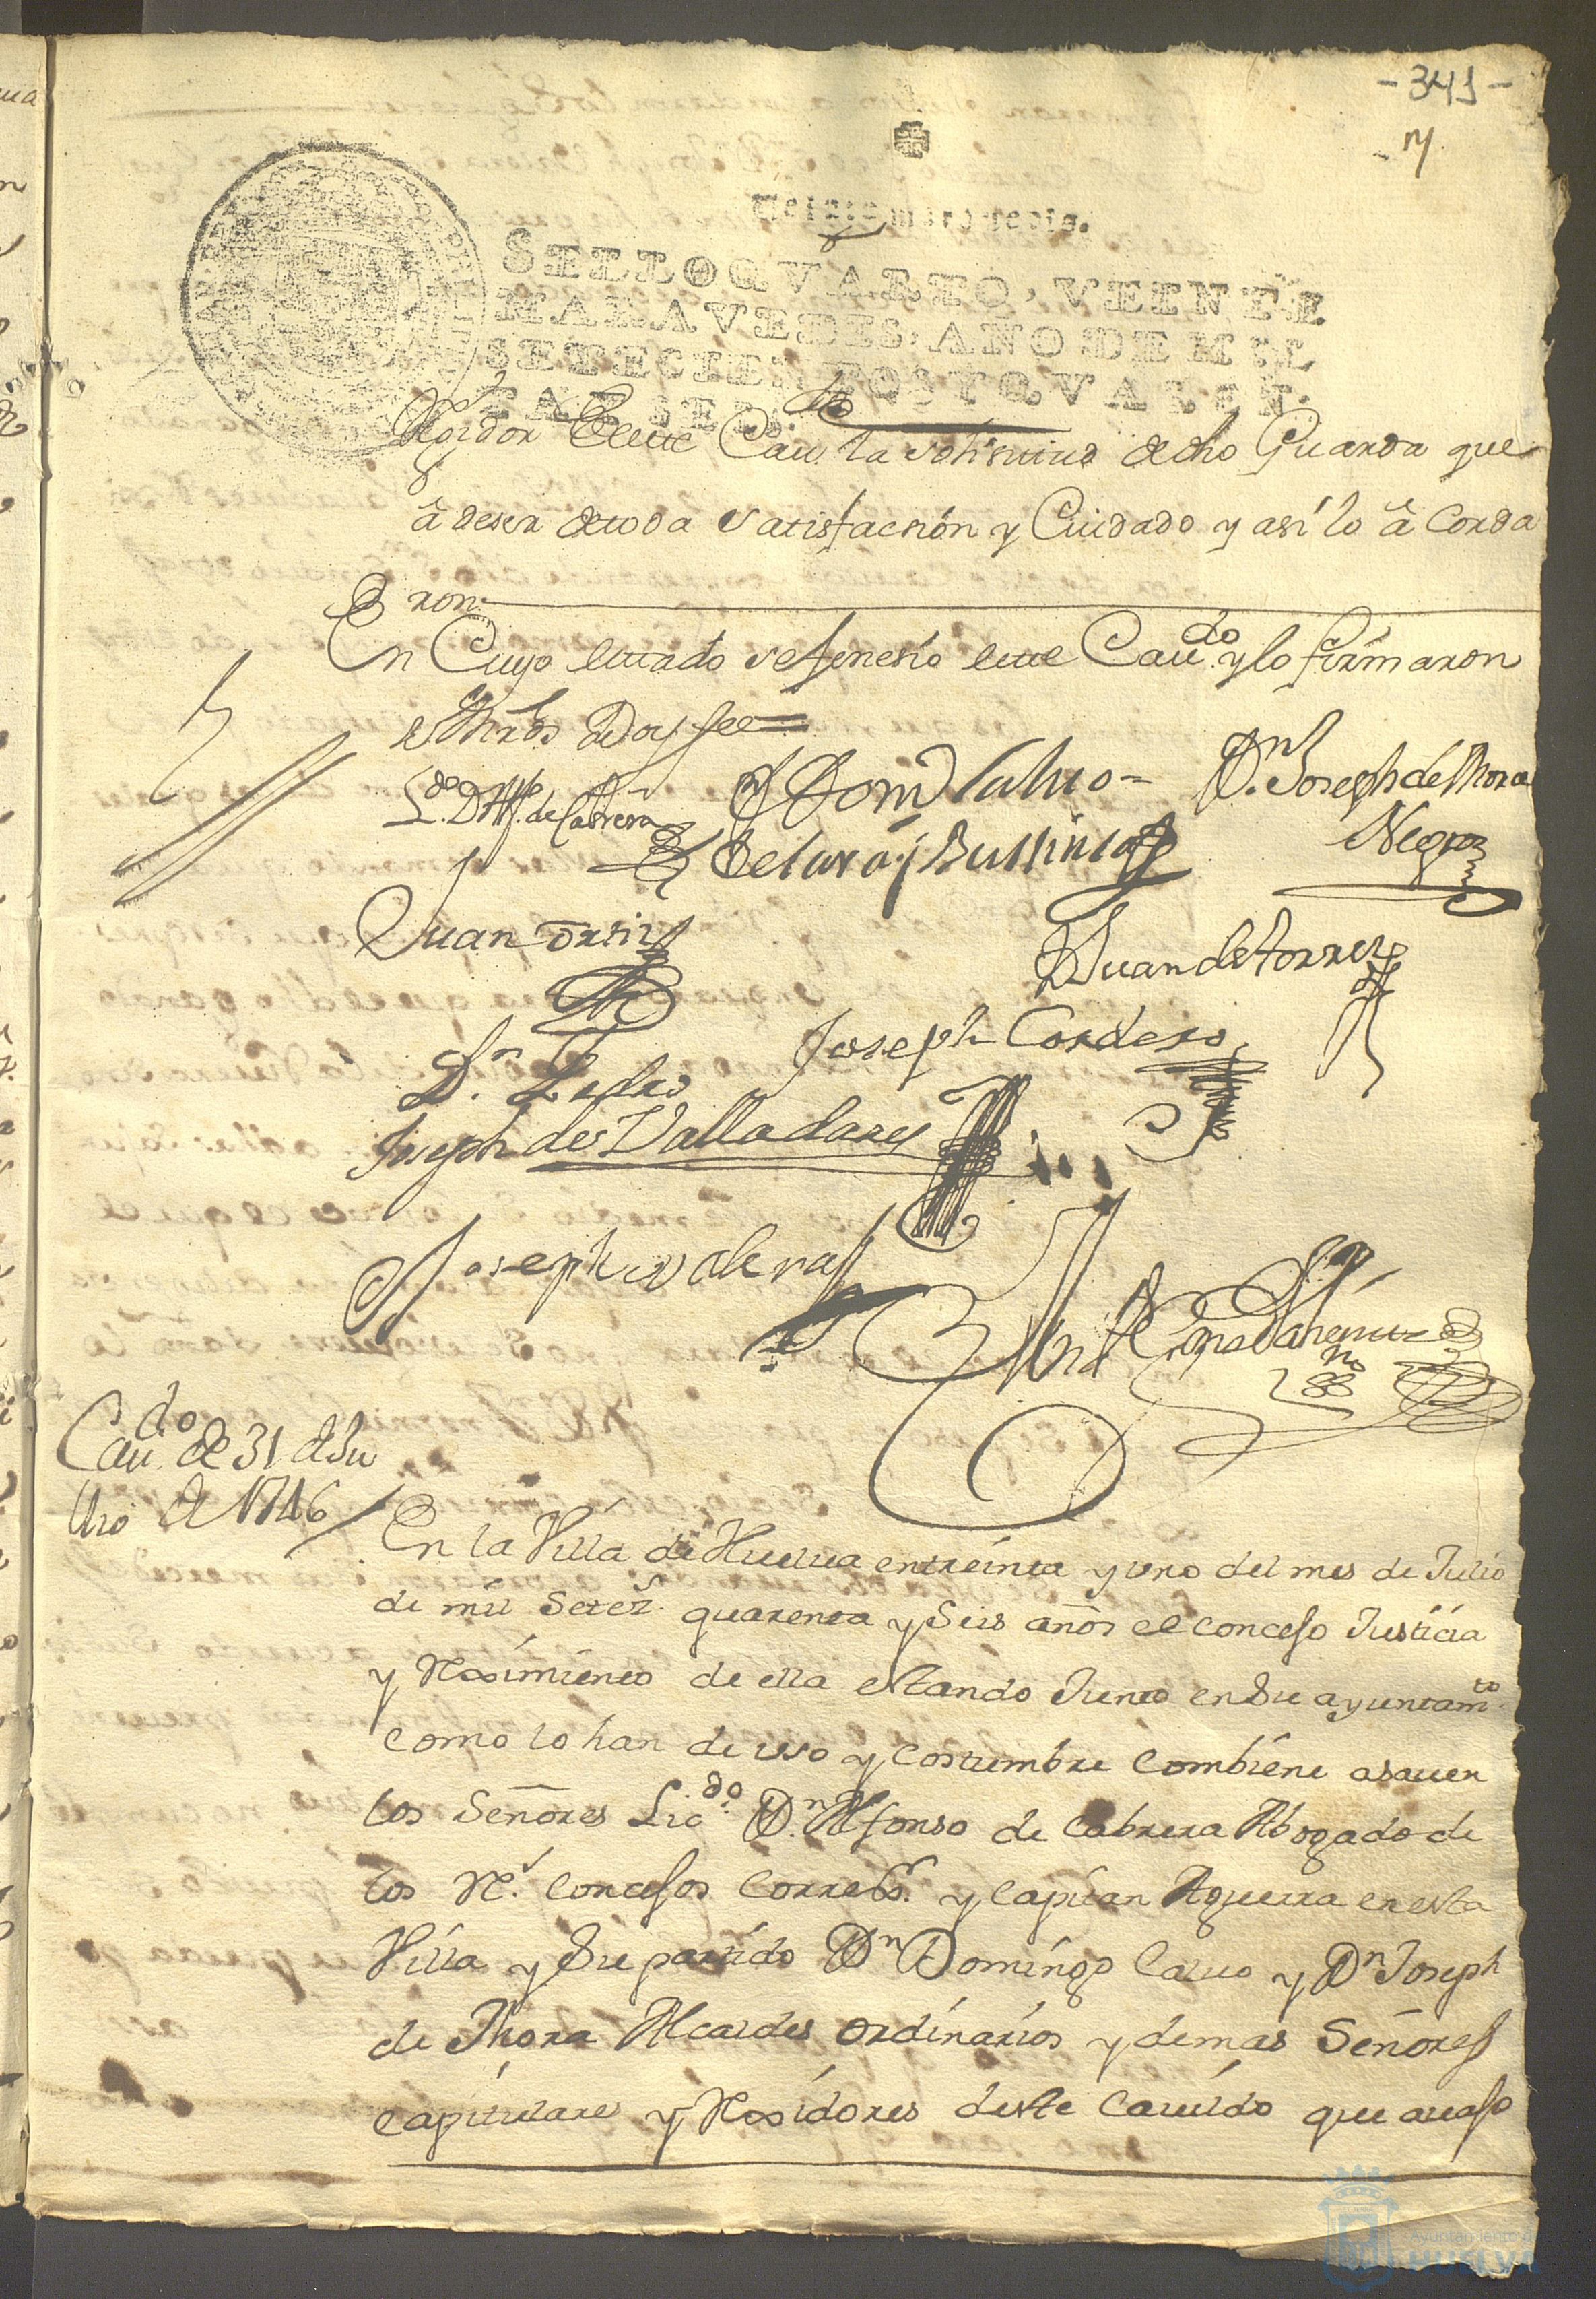 - 341 -
Veinte maravedis.
SELLO QVARTO, VEINTE
MARAVEDIS, AÑO DE MIL
SETECIENTOS Y QVAREN-
TA Y SEIS.
Rexidor deste Cau.do la solisitud de dho Guarda que
à de ser de toda satisfacsión y Cuidado y así lo à Corda
ron.
En Cuyo estado se fenesío este Cau.do y lo firmaron
sus Mrds Doy fee =
L.do D. Alf. de Cabrera
Dom Calvo =
D.n Joseph de Mora
Negro
Juan Ortiz
Juan de torres
Joseph Cordero
D.n Pedro
Joseph de Valladares
Joseph valera
Cau.do de 31 de Ju
llio de 1746
En la Villa de Huelua en treinta y uno del mes de Julio
de mil Setez. quarenta y Seis años el concejo Justicia
y Reximiento de ella estando Junto en Su ayuntam.to
como lo han de uso y costumbre combiene asauer
los Señores Lic.do D.n Alfonso de Cabrera Abogado de
los R.s concejos Corre.or y Capitan Aguerra en esta
Villa y Su partido D.n Domingo Calvo y D.n Joseph
de Mora Alcaldes ordinarios y demas Señores
capitulares y Rexidores deste Cauildo que auajo
Ayuntamiento de
HUELVA